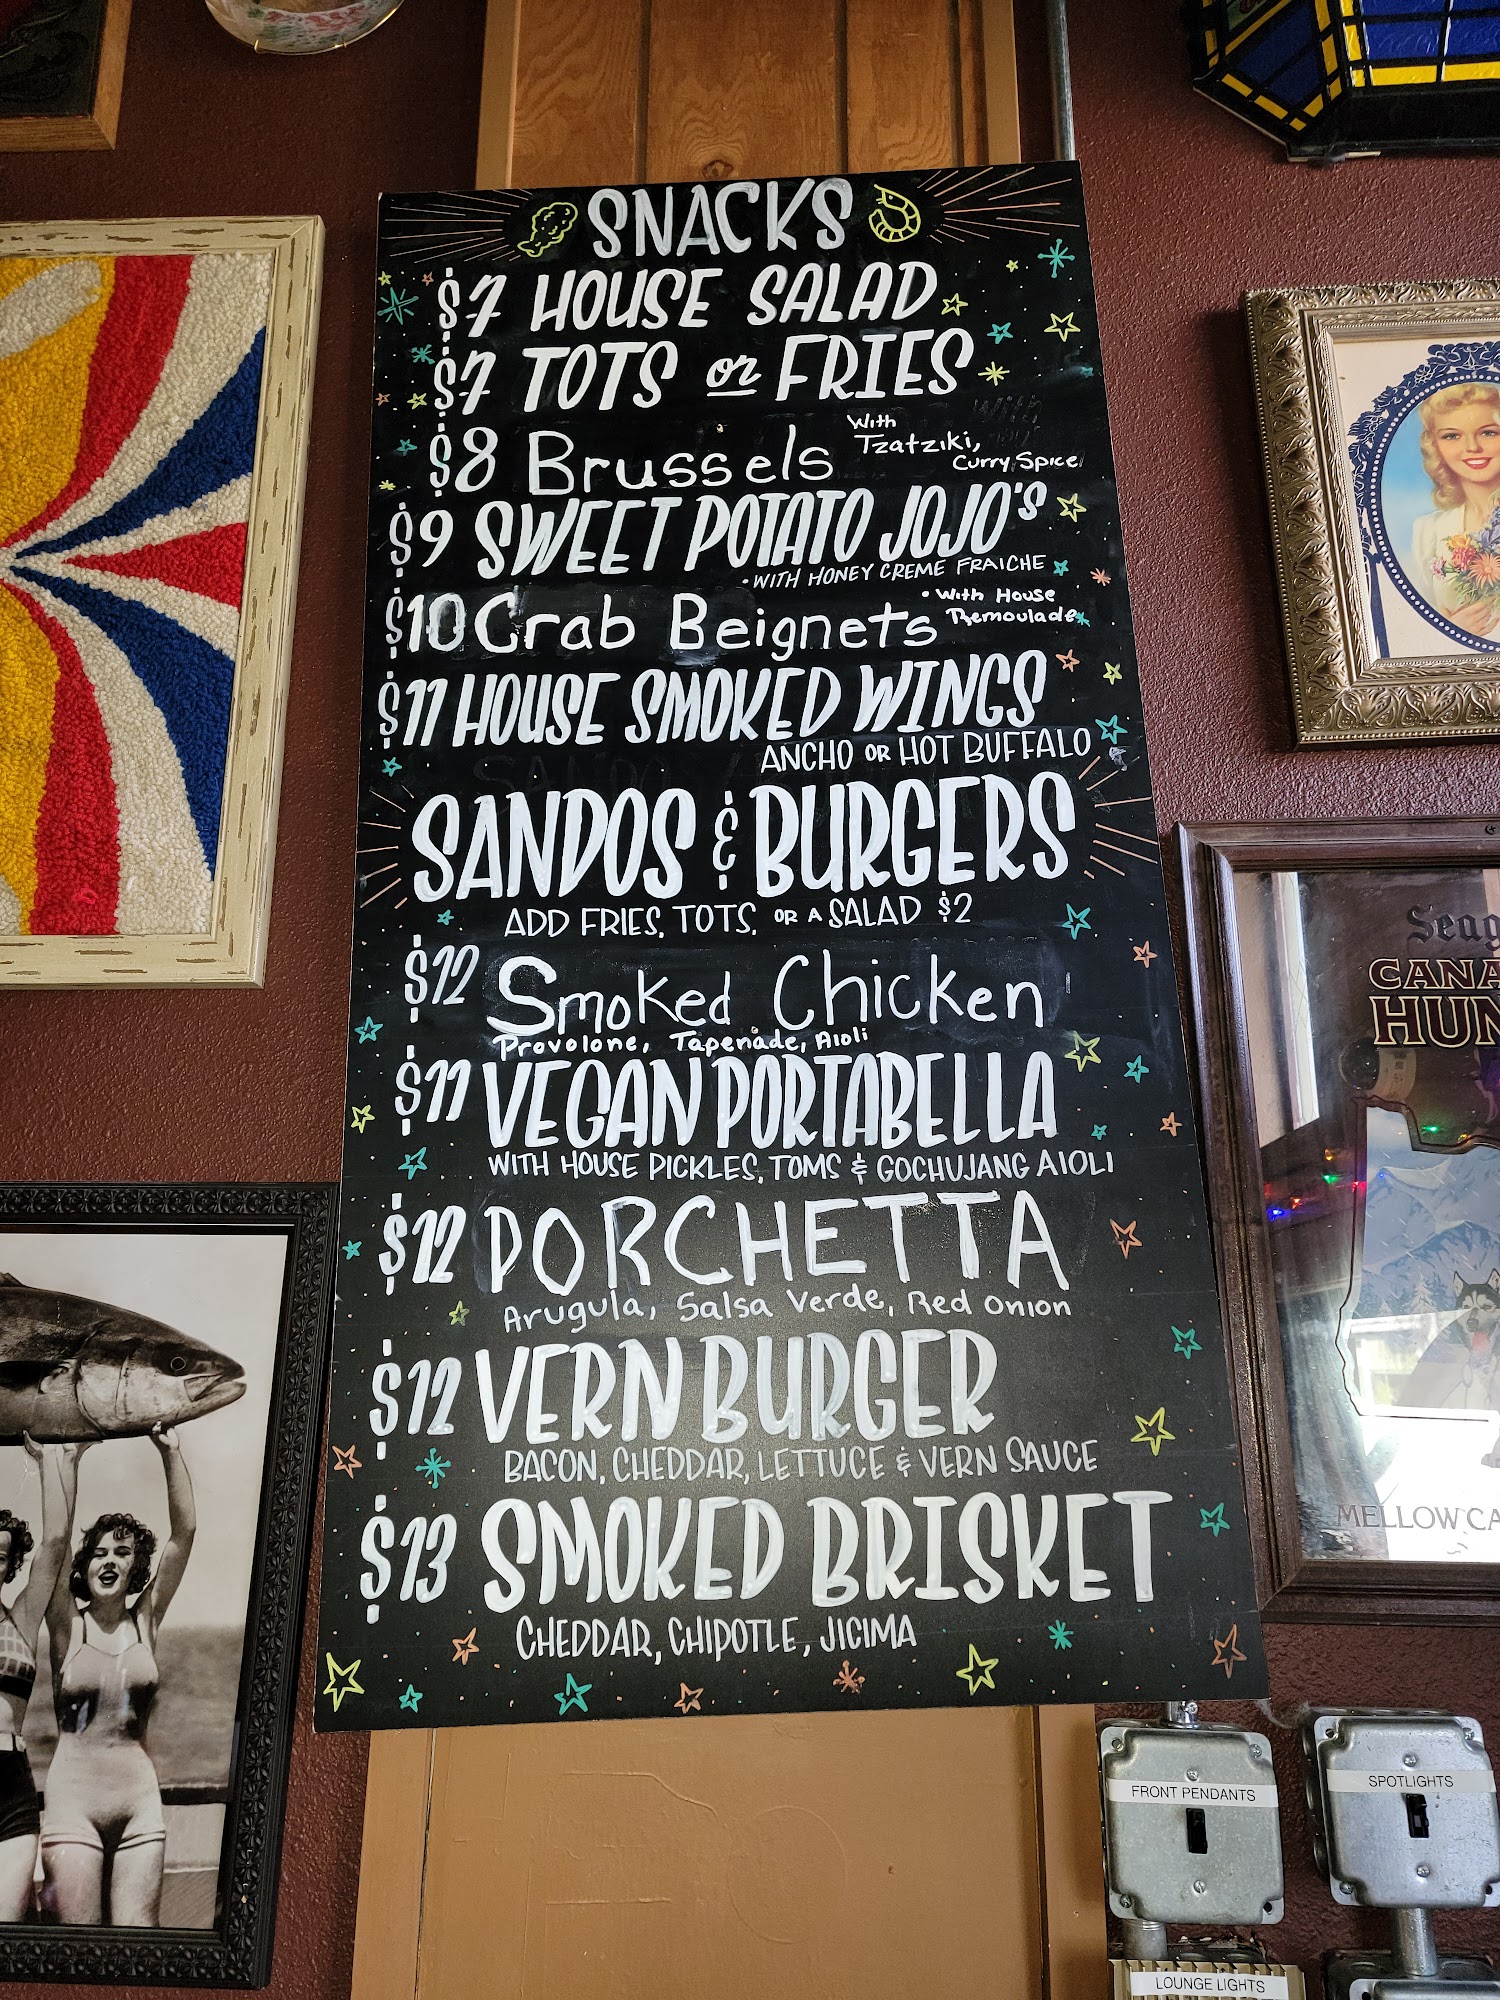 SNACKS
$7 HOUSE SALAD
$7 TOTS or FRIES
$8 Brussels With Tzatziki, Curry Spice
$9 SWEET POTATO JOJO'S
• WITH HONEY CREME FRAICHE
$10 Crab Beignets • With House Remoulade
$11 HOUSE SMOKED WINGS
ANCHO OR HOT BUFFALO
SANDOS & BURGERS
ADD FRIES, TOTS, OR A SALAD $2
$12 Smoked Chicken
Provolone, Tapenade, Aioli
$11 VEGAN PORTABELLA
WITH HOUSE PICKLES, TOMS & GOCHUJANG AIOLI
$12 PORCHETTA
Arugula, Salsa Verde, Red Onion
$12 VERN BURGER
BACON, CHEDDAR, LETTUCE & VERN SAUCE
$13 SMOKED BRISKET
CHEDDAR, CHIPOTLE, JICIMA
Seag
CANA
HUN
MELLOW CA
FRONT PENDANTS
SPOTLIGHTS
LOUNGE LIGHTS